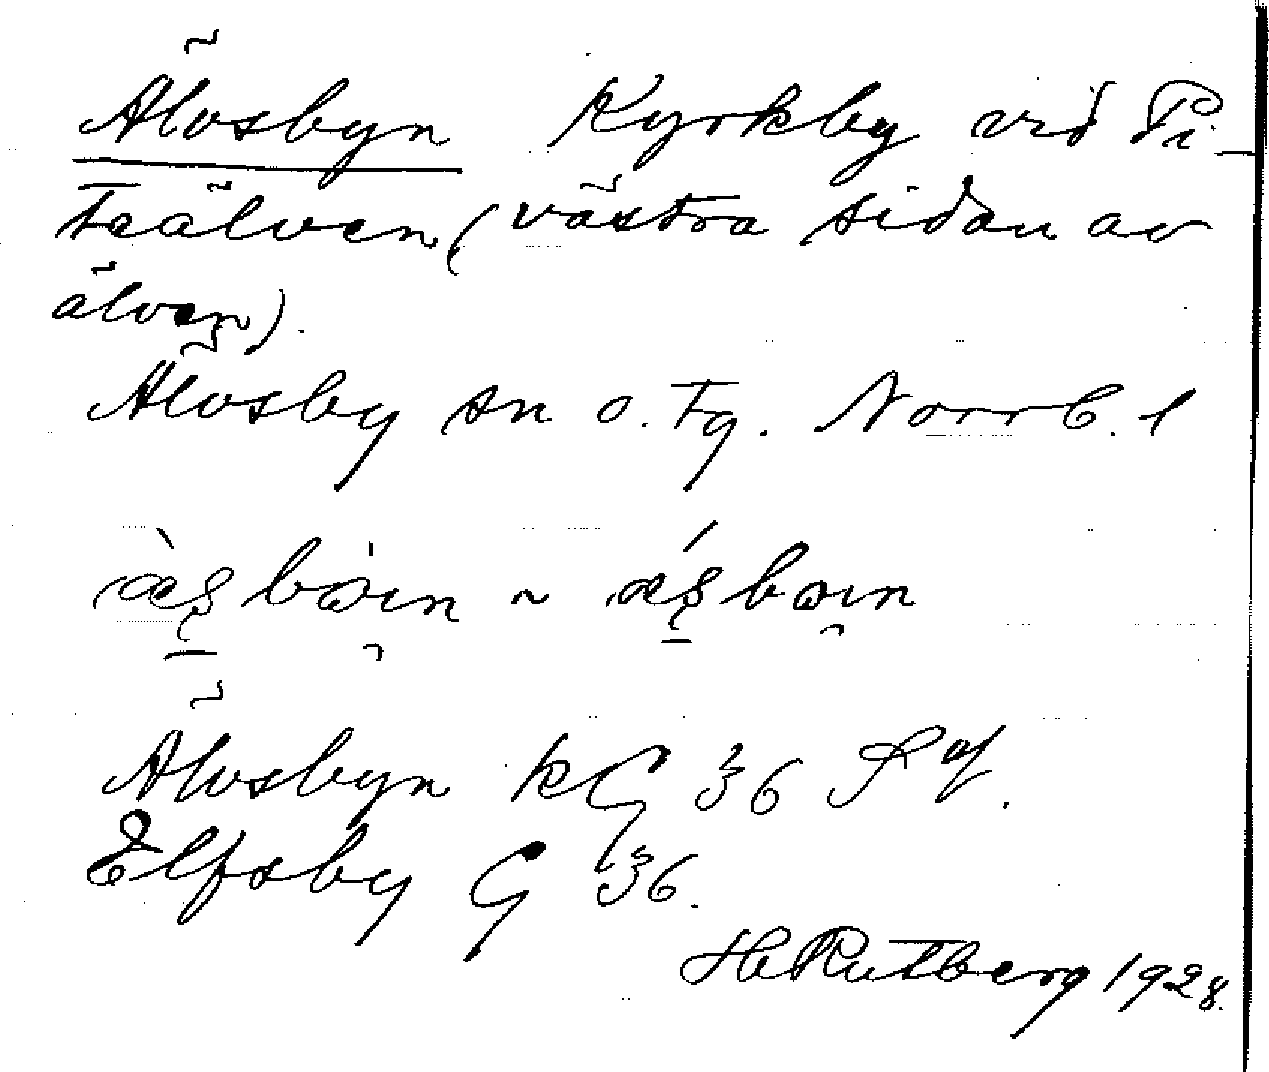 Älvsbyn Kyrkby vid Pi-
teälven (västra sidan av
älven).
Älvsby sn o. tg. Norrb. l
Älvsbyn kG 36
Elfsby G 36.
H Rutberg 1928.